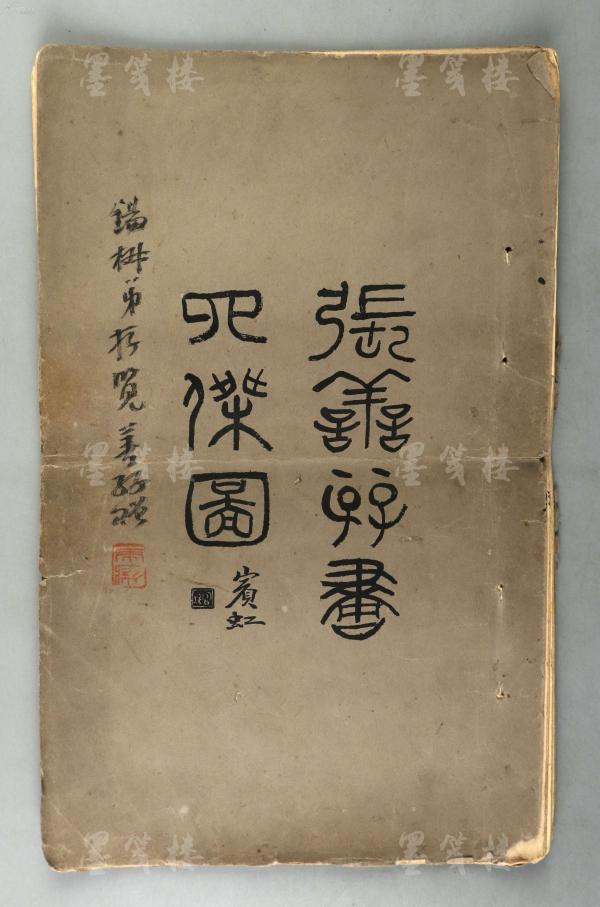 張善孖畫
四傑圖
賓虹
弟存覽 善孖贈
墨笺楼
墨笺楼
墨笺楼
墨笺楼
墨笺楼
墨笺楼